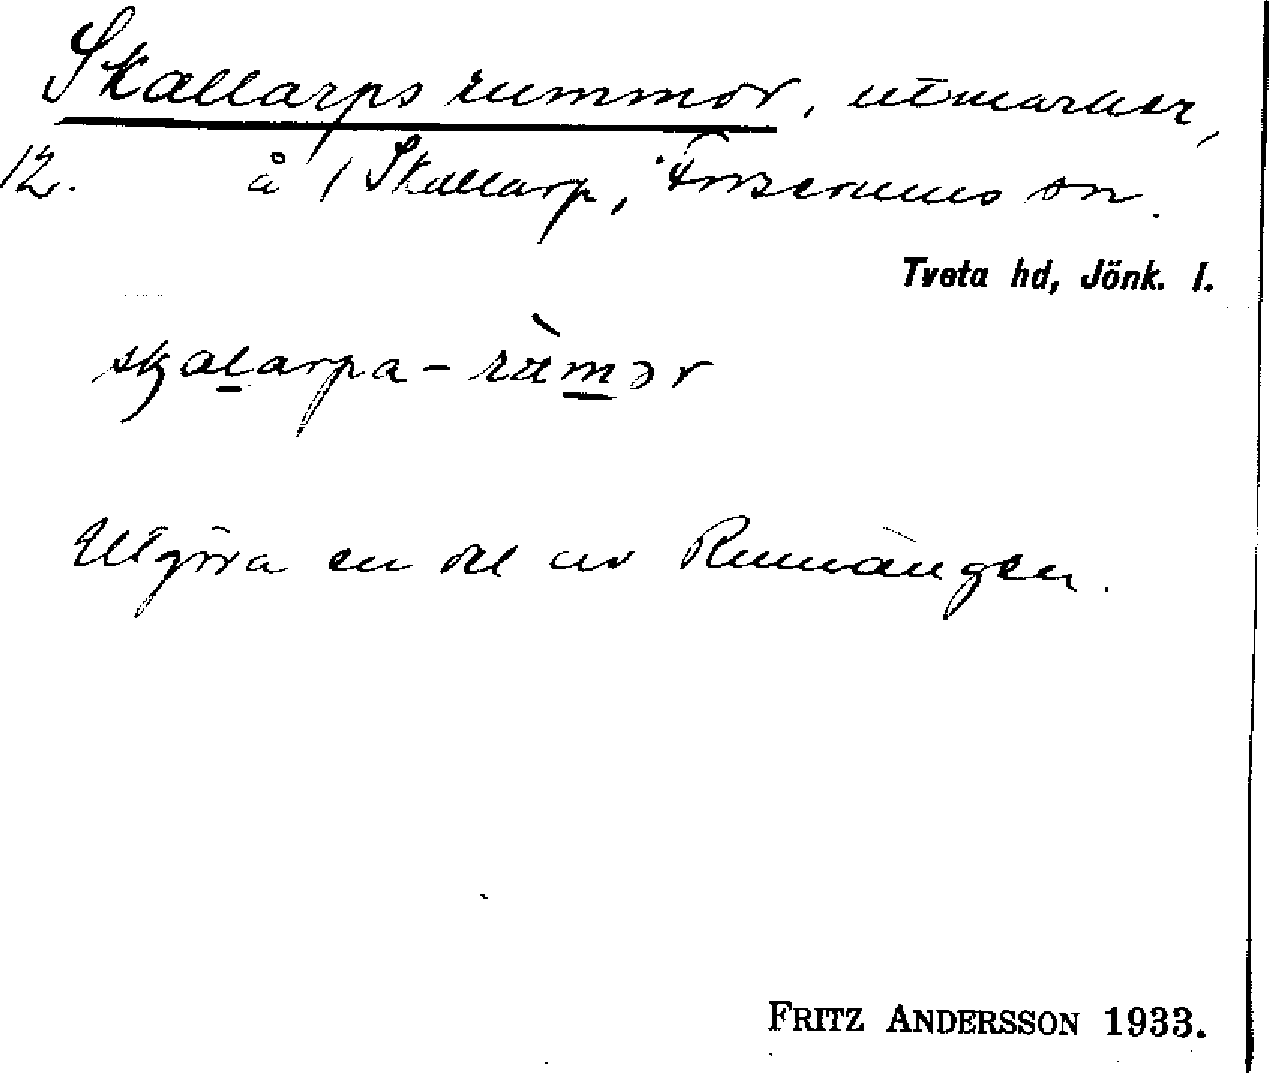 Skallarps rummor, utmarker,
12. å 1 Skallarp, Forserums sn.
Tveta hd, Jönk. l.
skalarpa-rùmər
Utgöra en del av Rumängen.
FRITZ ANDERSSON 1933.